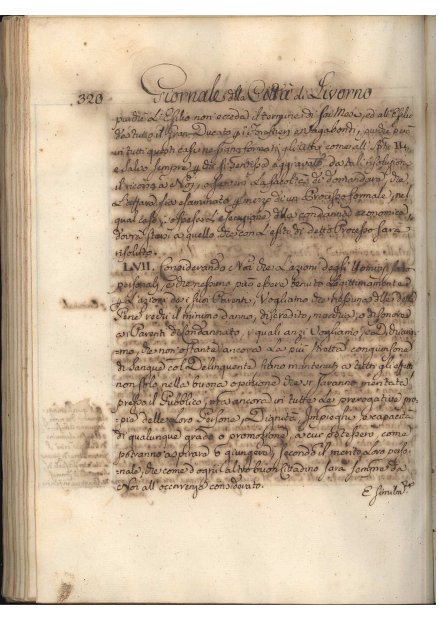 320 Giornale della Città di Livorno
purchè l'Esilio non ecceda il termine di sei Mesi, ed all'Esilio
da tutto il Gran Ducato p. i Forestieri e Vagabondi, purchè però
in tutti questi casi ne siano formati gli Atti come all'Art. III.
e salvo sempre a chi si sentisse aggravato da tali risoluzioni
il ricorso a Noi, o la facoltà di domandare che
l'affare sia esaminato p. mezzo di un Processo formale, nel
qual caso, sospesa l'esecuzione della condanna economica
dovrà starsi a quello che con l'esito di detto Processo sarà
risoluto.
LVII. Considerando Noi che le azioni degli Uomini sono
personali, e che nessuno può essere punito legittimamente
p. le azioni de' suoi Parenti, Vogliamo che nessuna delle dette
Pene rechi il minimo danno, discredito, nota, o disonore
ai Parenti del condannato, i quali anzi Vogliamo, e Dichiaria-
mo, che non ostante ancora la più stretta congiunzione
di sangue col Delinquente siano mantenuti a tutti gli effetti
non solo nella buona opinione che si saranno meritata
presso il Pubblico, ma ancora in tutte le prerogative pro-
prie delle loro Persone, Dignità, Impieghi, e capacità
di qualunque grado o promozione, a cui potessero, come
potranno aspirare, e giungere, secondo il merito loro perso-
nale, che come d'ogni altro buon Cittadino sarà sempre da
Noi all'occorrenze considerato.
E similm.te